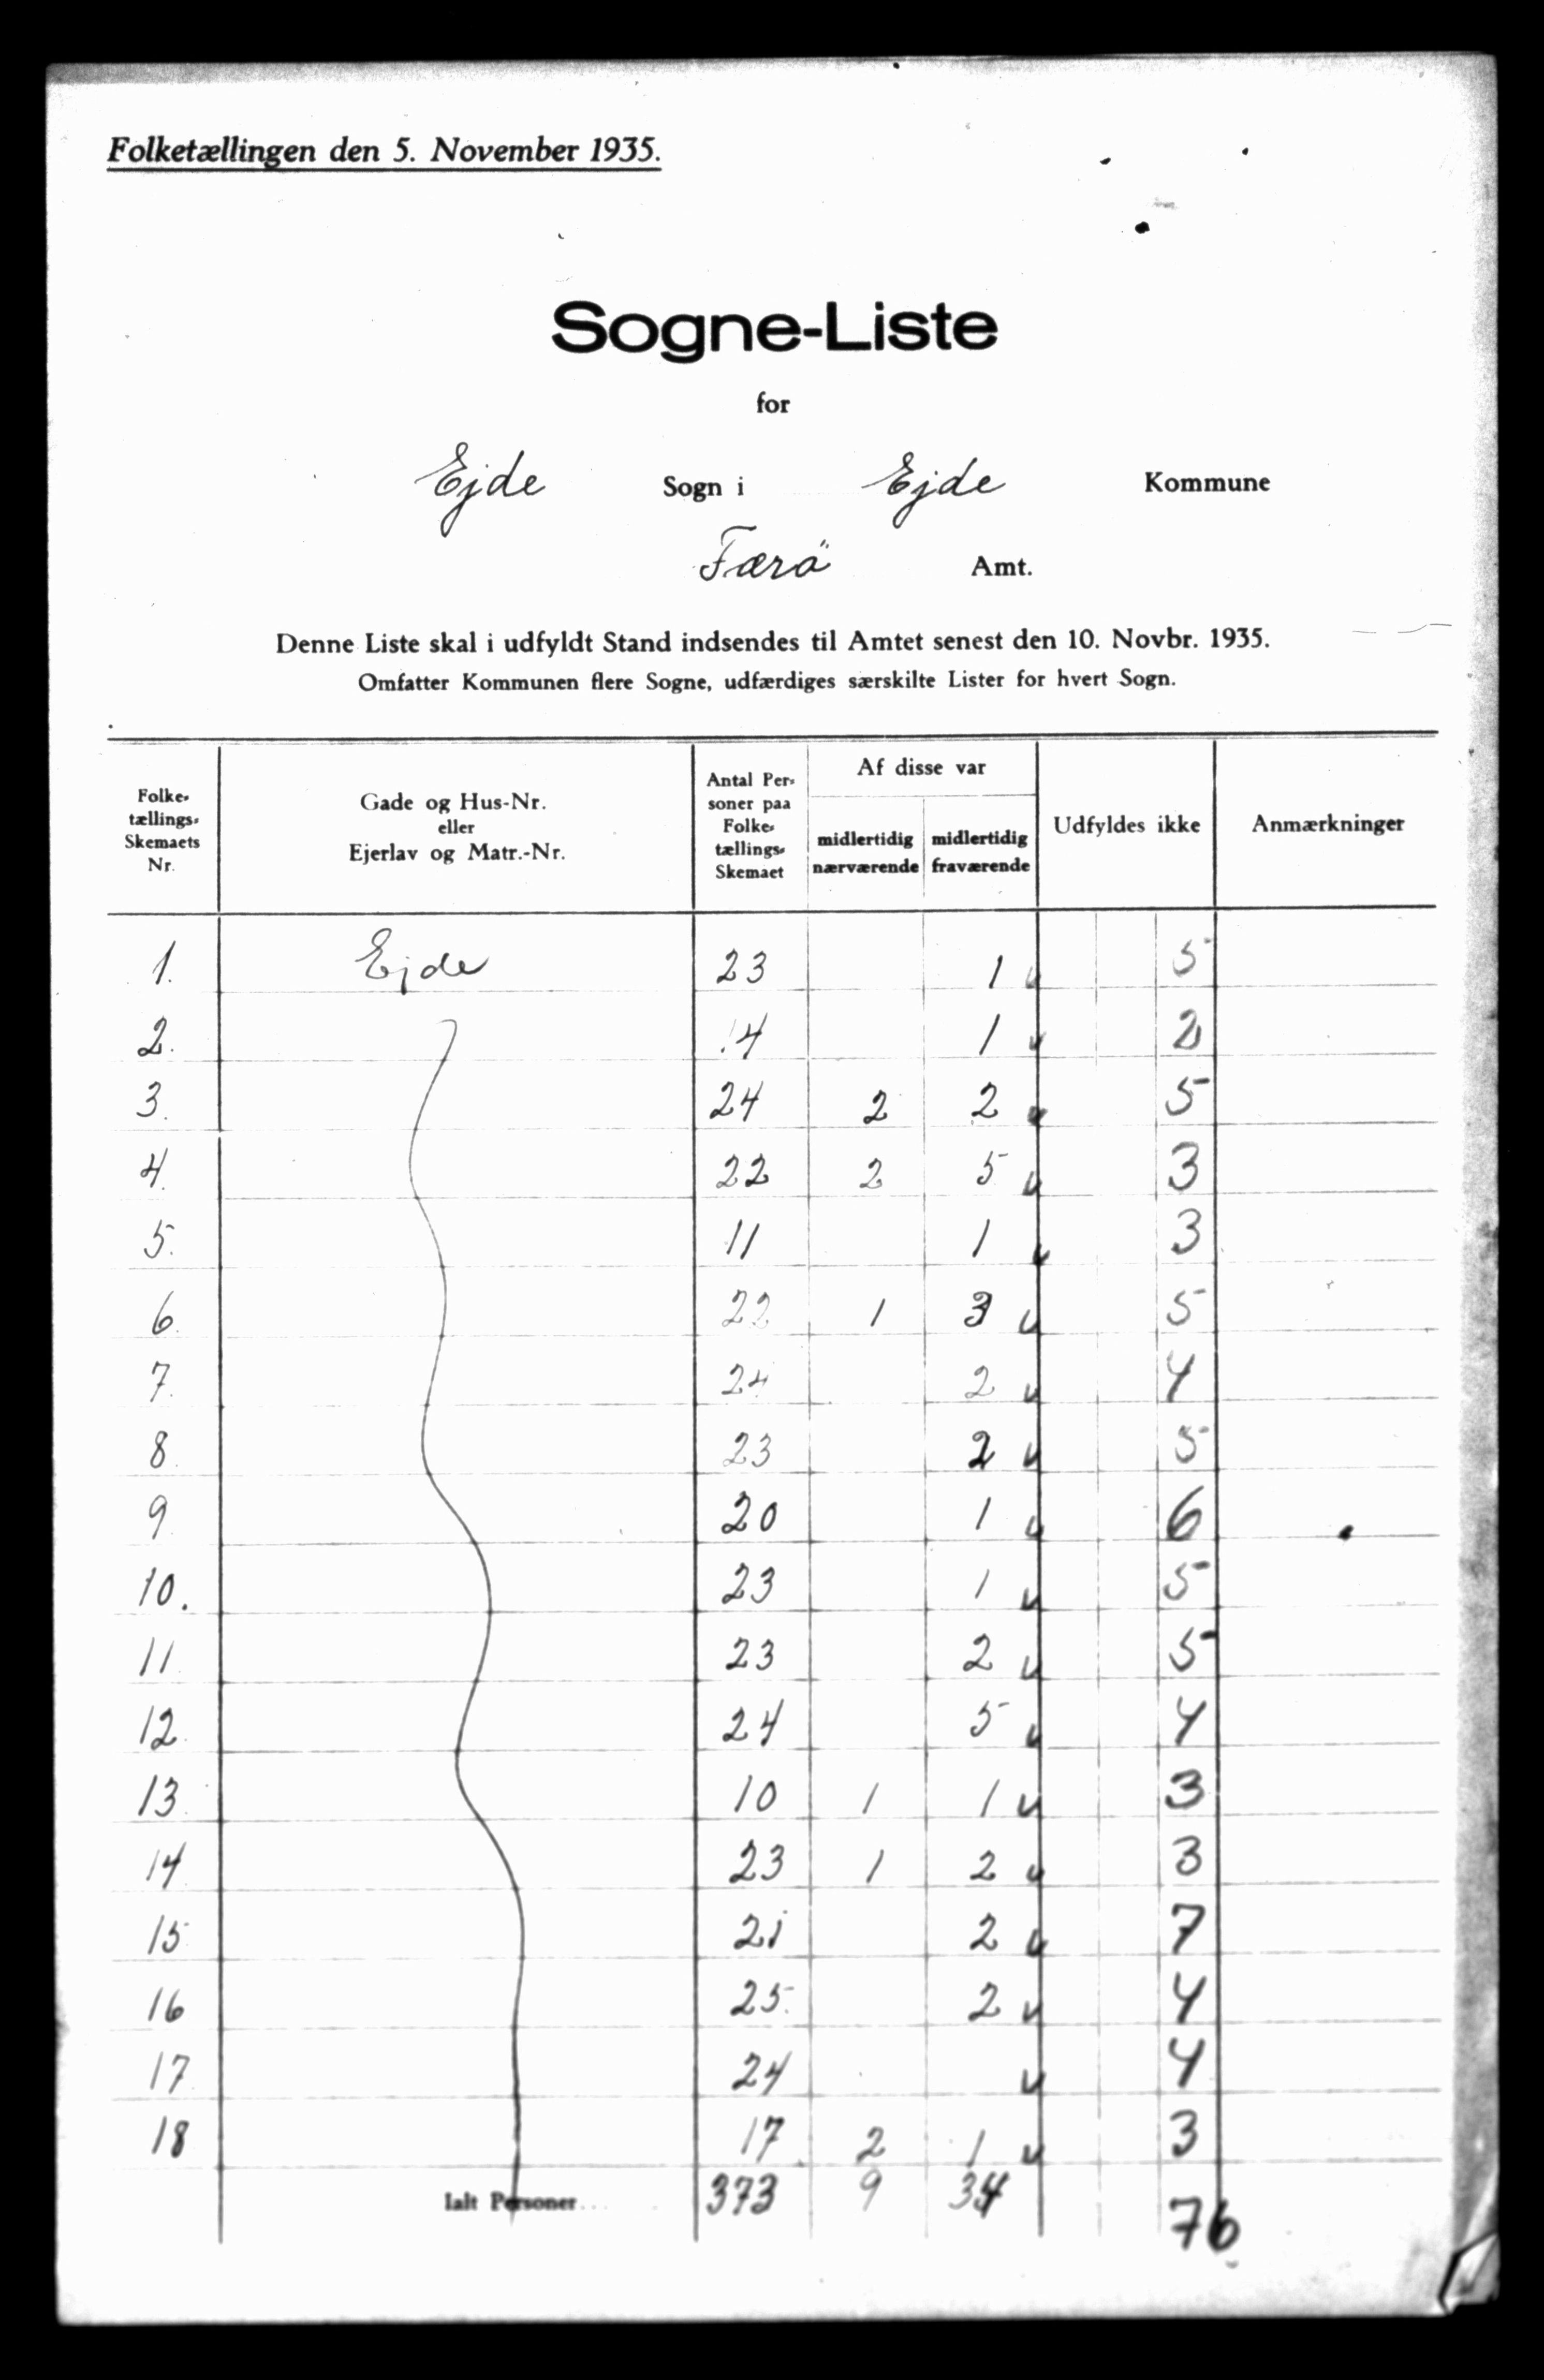 Folketællingen den 5. November 1935.
Sogne-Liste
for
Ejde Sogn i Ejde Kommune
Færö Amt.
Denne Liste skal i udfyldt Stand indsendes til Amtet senest den 10. Novbr. 1935.
Omfatter Kommunen flere Sogne, udfærdiges særskilte Lister for hvert Sogn.
Folke-
tællings-
Skemaets
Nr.
Gade og Hus-Nr.
eller
Ejerlav og Matr.-Nr.
Antal Per-
soner paa
Folke-
tællings-
Skemaet
Af disse var
midlertidig
nærværende
midlertidig
fraværende
Udfyldes ikke
Anmærkninger
1. Ejde 23 1 v 5
2. 14 1 v 2
3. 24 2 2 v 5
4. 22 2 5 v 3
5. 11 1 v 3
6. 22 1 3 v 5
7. 24 2 v 4
8. 23 2 v 5
9. 20 1 v 6
10. 23 1 v 5
11. 23 2 v 5
12. 24 5 v 4
13. 10 1 1 v 3
14. 23 1 2 v 3
15 21 2 v 7
16 25. 2 v 4
17. 24 v 4
18 17 2 1 v 3
Ialt Personer... 373 9 34 76